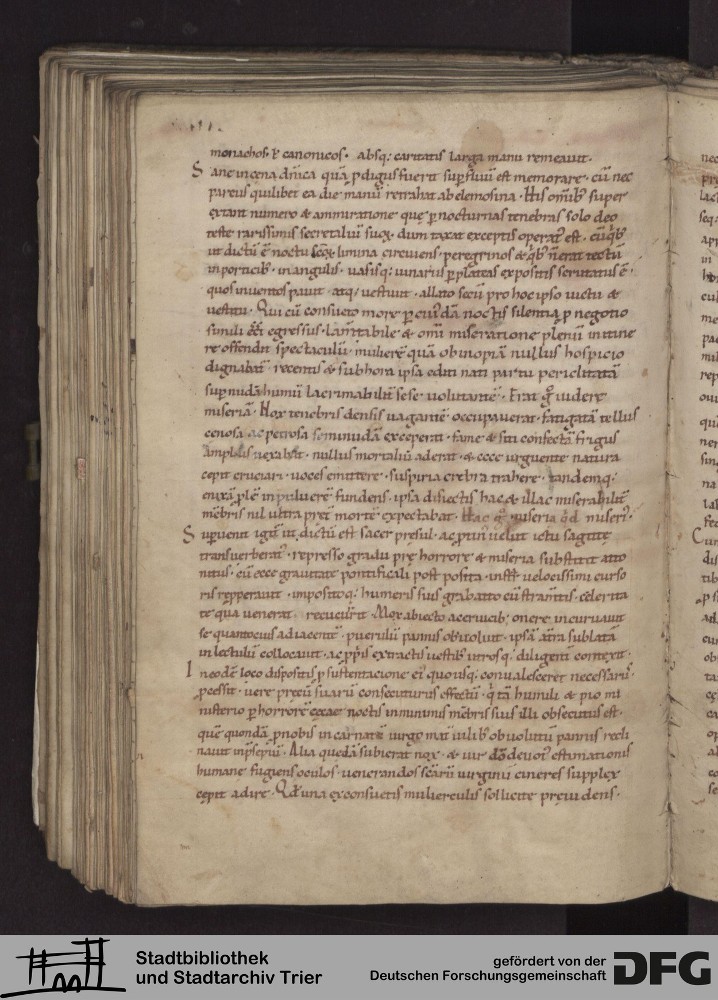 monachos · & canonicos · absq; caritatis larga manu remeauit ·
Sane in cena dn̄ica quā ꝓdigus fuerit supfluū est memorare · cū nec
parcus quilibet ea die manū retrahat ab elemosina · His om̄ib; super
extant numero & ammiratione que ꝑ nocturnas tenebras solo deo
teste rarissimis secretaliū suoꝝ · dum taxat exceptis operat' est ·
ut dictū ē noctu sc̄oꝝ limina circuiens · peregrinos & qib; n̄ erat tectū
in porticib; · in angulis · uasisq; uinariis ꝑ plateas expositis scrutatus ē ·
quos inuentos pauit · atq; uestiuit · allato secū pro hoc ipso uictu &
uestitu · Qui cū consueto more ꝑ cuiusdā noctis silentia ꝓ negotio
simili egressus · lam̄tabile & om̄i miseratione plenū intime
re offendit spectaculū · mulierē quā ob inopiā nullus hospicio
dignabat' · recentis & sub hora ipsa editi nati partu periclitatā
sup nudā humū lacrimabilit' sese uoluitantē · Erat g° uidere
miseriā · Nox tenebris densis uagantē occupauerat · fatigatā tellus
cenosa ac petrosa seminudā exceperat · fame & siti confectā frigus
amplius uexabat · nullus mortaliū aderat · & ecce urguente natura
cepit cruciari · uoces emittere · suspiria crebra trahere · tandemq;
enixā plē in puluerē fundens · ipsa disiectis hac & illac miserabilit'
mēbris nil ultra pret' mortē expectabat ·
Supuenit igit' ut dictū est sacer presul · ac ptin' uelut ictu sagittę
transuerberat' · represso gradu prę horrore & miseria substitit atto
nitus · cū ecce grauitate pontificali post posita · inst' uelocissimi curso
ris repperauit · impositoq; humeris suis grabatto cū stram̄tis · celerita
te qua uenerat · recucurrit · Mox abiecto aceruicib; onere incuruauit
se quantocius adiacenti · puerulū pannis obuoluit · ipsā at̄ra sublatā
in lectulū collocauit · ac ppriis extractis uestib; utrosq; diligent' contexit ·
In eodē loco dispositis ꝓ sustentatione ei' quousq; conualesceret necessariis
pcessit · uere precū suarū consecuturus effectū · q tā humili & pio mi
nisterio ꝑ horrorē cecae noctis in minimis mēbris suis illi obsecutus est ·
quē quondā ꝓ nobis incarnatū uirgo mat' uilib; obuolutū pannis recli
nauit in presepiū · Alia quedā subierat nox · & uir dō deuot' estimationis
humane fugiens oculos · uenerandos sc̄arū uirginū cineres supplex
cepit adire · Qd' una ex consuetis mulierculis sollicite preuidens ·
Stadtbibliothek
und Stadtarchiv Trier
gefördert von der
Deutschen Forschungsgemeinschaft
DFG